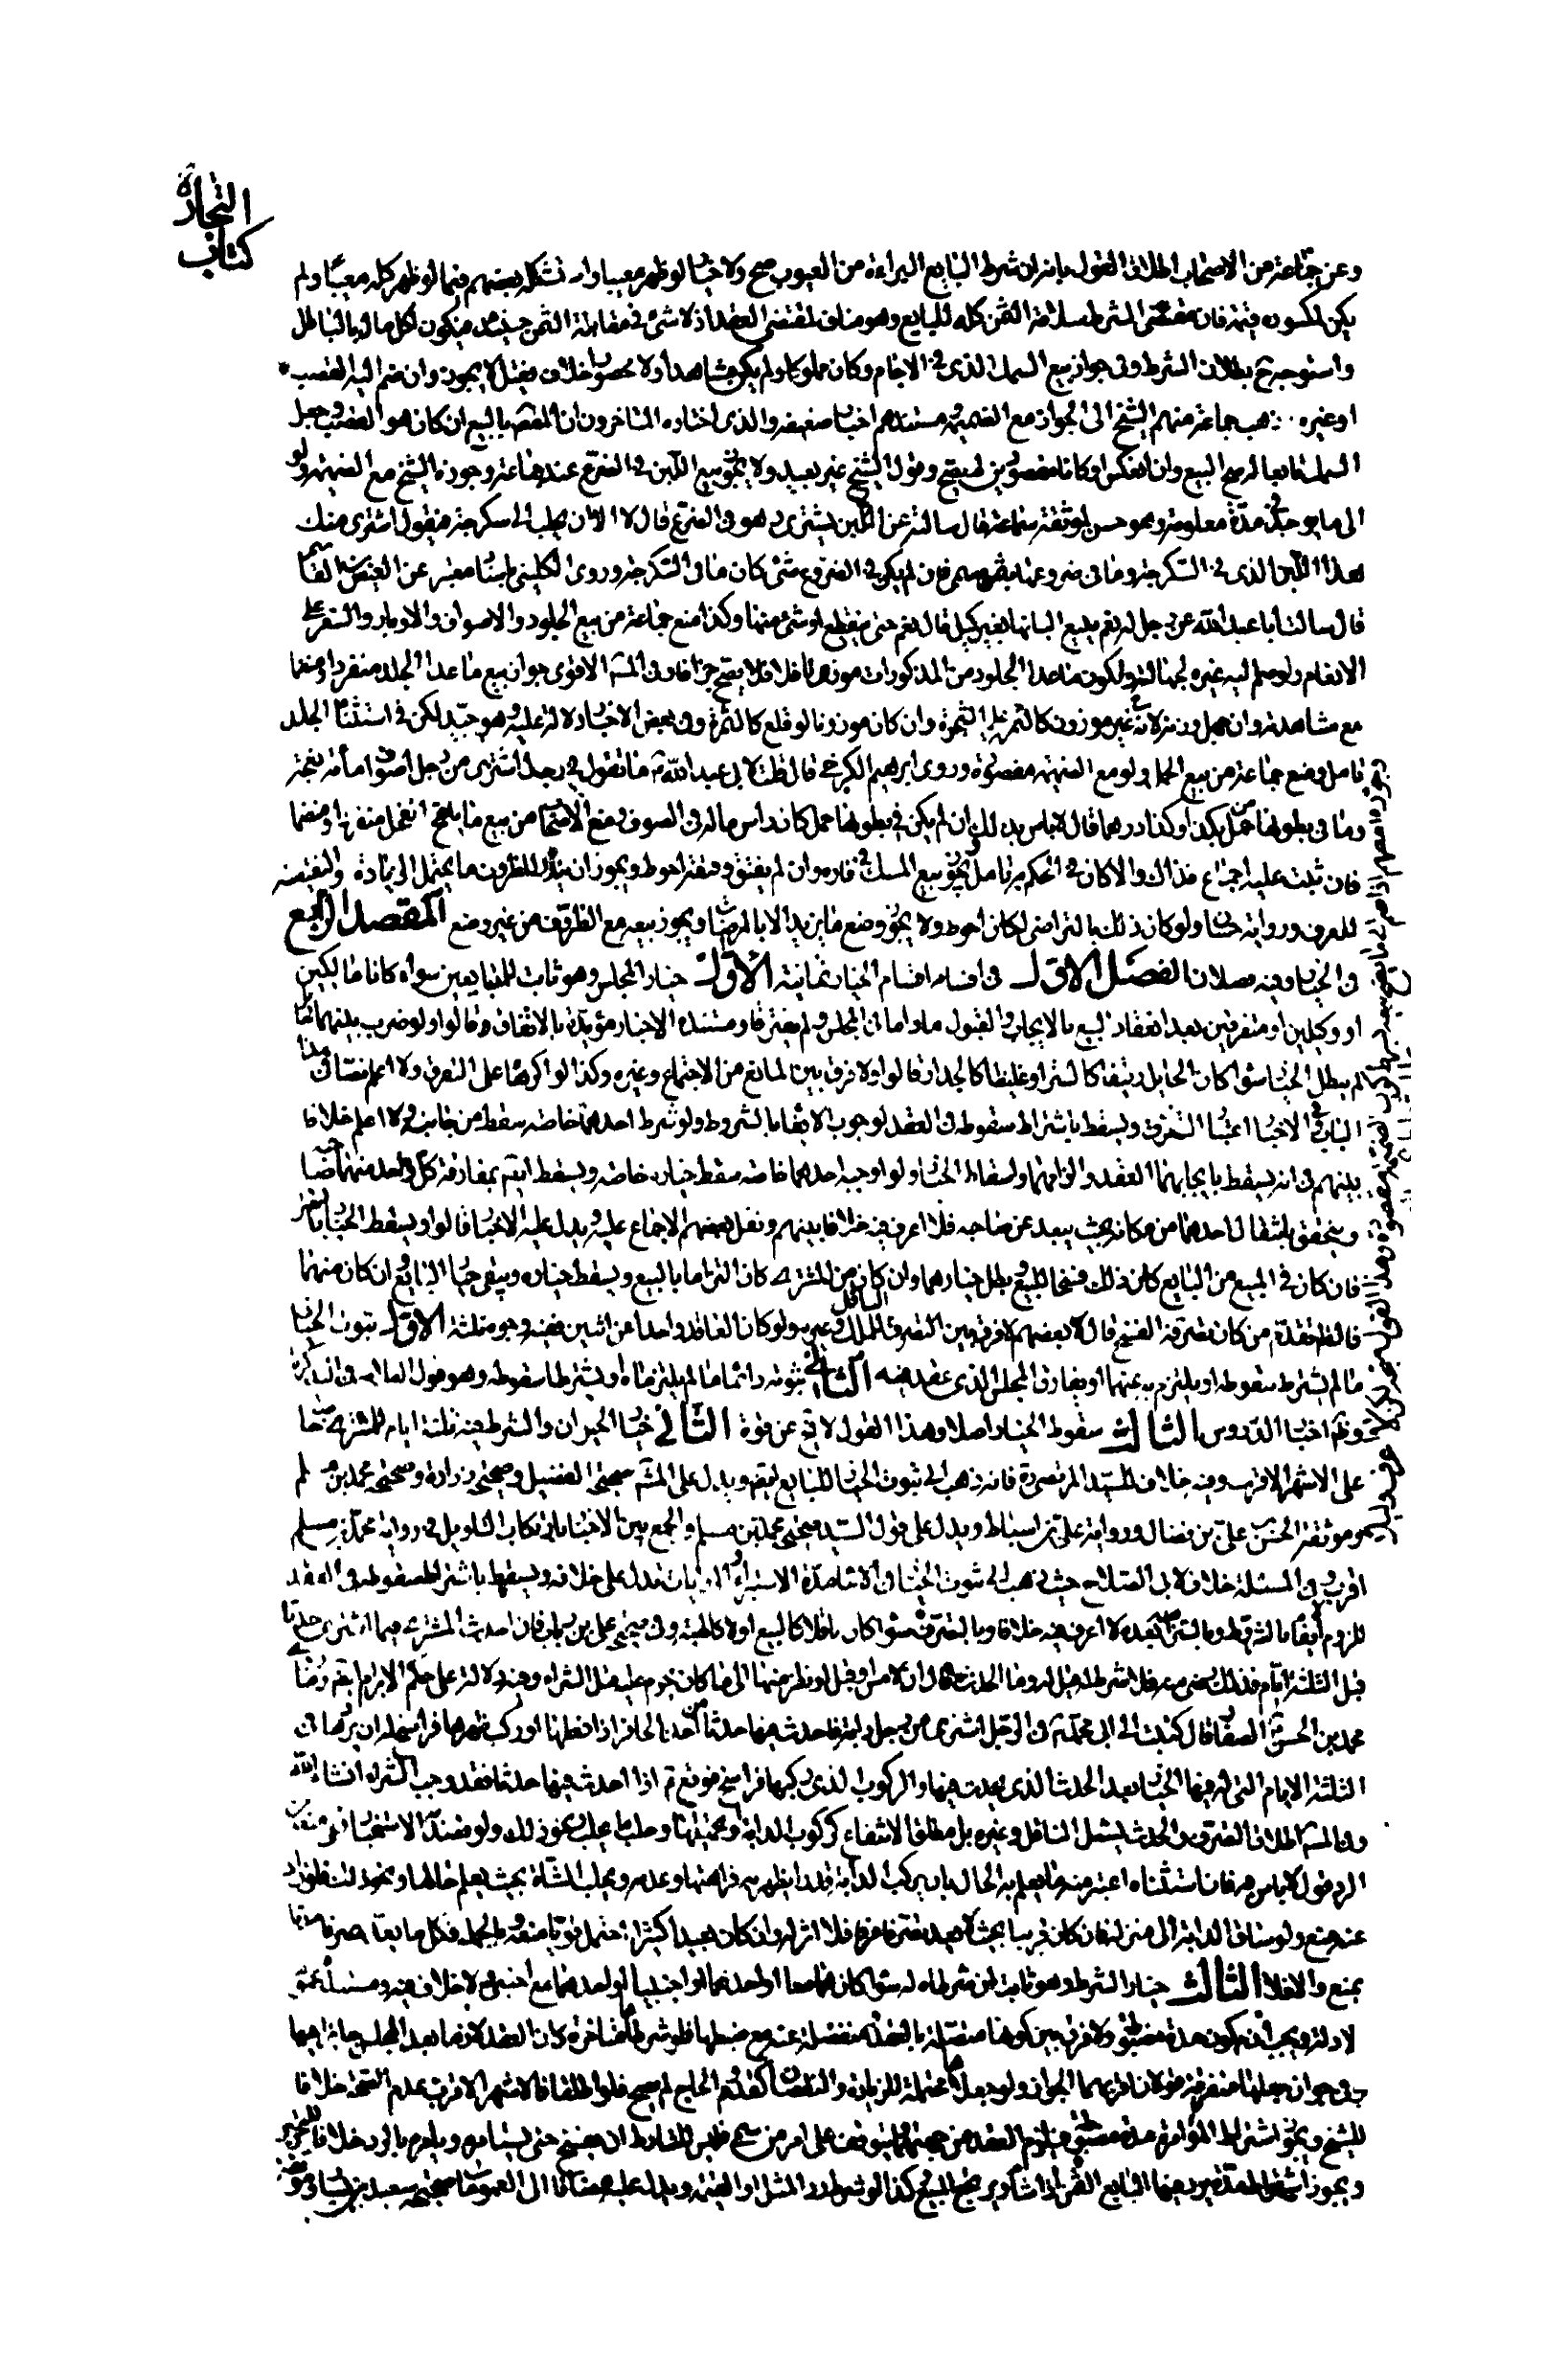 التجارة
كتاب
وعن جماعة من الاصحاب اطلاق القول بانه ان شرط البايع البراءة من العيوب صح ولا خيار لو ظهر معيبا واستشكله بعضهم فيما لو ظهر كله معيبا ولم
يكن لمكسوره قيمة فان مقتضى الشرط سلامة الثمن كله للبايع وهو مناف لمقتضى العقد اذ لا شئ في مقابلة الثمن حينئذ فيكون اكل مال بالباطل
واستوجه بطلان الشرط وفي جواز بيع السمك الذي في الاجام وكان مملوكا ولم يكن مشاهدا ولا محصورا خلاف فقيل لا يجوز وان ضم اليه القصب
او غيره وذهب جماعة منهم الشيخ الى الجواز مع الضميمة ومستندهم اخبار ضعيفة والذي اختاره المتاخرون ان المقصود بالبيع ان كان هو القصب وجعل
السمك تابعا له صح البيع وان انعكس او كانا مقصودين لم يصح وقول الشيخ غير بعيد ولا يجوز بيع اللبن في الضرع عند جماعة وجوزه الشيخ مع الضميمة ولو
الى ما يوجد في مدة معلومة وهو حسن لموثقة سماعة قال سالته عن اللبن يشترى وهو في الضرع قال لا الا ان يحلب الى سكرجة فيقول اشترى منك
هذا اللبن الذي في السكرجة وما في ضروعها بثمن مسمى فان لم يكن في الضروع شئ كان ما في السكرجة وروى الكليني باسناد معتبر عن العيص بن القاسم
قال سالت ابا عبد الله عن رجل له نعم يبيع البانها بغير كيل قال نعم حتى ينقطع او شئ منها وكذا منع جماعة من بيع الجلود والاصواف والاوبار والشعر على
الانعام ولو ضم اليه غيره لجهالته ولكون ما عدا الجلود من المذكورات موزونا فلا يصح جزافا وفي المشهور الاقوى جواز بيع ما عدا الجلد منفردا ومنضما
مع مشاهدته وان جهل وزنه لانه غير موزون كالثمرة على الشجرة وان كان موزونا لو قلع كالثمرة وفي بعض الاخبار دلالة عليه وهو جيد لكن في استثناء الجلد
تامل ومنع جماعة من بيع الحمل ولو مع الضميمة مقصودة وروى ابرهيم الكرخي قال قلت لابي عبد الله ما تقول في رجل اشترى من رجل اصواف مائة نعجة
وما في بطونها من حمل بكذا وكذا درهما قال لا باس بذلك ان لم يكن في بطونها حمل كان راس ماله في الصوف ومنع الاصحاب من بيع ما يلقح الفحل منفردا ومنضما
فان ثبت عليه اجماع فذاك والا كان في الحكم به تامل ويجوز بيع المسك في فاره وان لم يفتق وفتقه احوط ويجوز ان يندر للظروف ما يحتمل الزيادة والنقيصة
للعرف ورواية حنان ولو كان ذلك بالتراضي لكان احوط ولا يجوز وضع ما يزيد الا بالمراضاة ويجوز بيعه مع الظروف من غير وضع المقصد الرابع
في الخيار وفيه فصلان الفصل الاول في اقسامه اقسام الخيار ثمانية الاول خيار المجلس وهو ثابت للمتبايعين سواء كانا مالكين
او وكيلين او متفرقين بعد انعقاد البيع بالايجاب والقبول ما داما في المجلس ولم يفترقا ومستنده الاخبار مؤيدة بالاتفاق وقالوا ولو ضرب بينهما حائل
لم يبطل الخيار سواء كان الحايل رقيقا كالستر او غليظا كالجدار قالوا ولا فرق بين المانع من الاجتماع وغيره وكذا لو اكرها على التفرق ولا اعلم نصا في هذا
الباب في الاخبار اعتبار التفرق ويسقط باشتراط سقوطه في العقد لوجوب الايفاء بالشروط ولو شرط احدهما خاصة سقط من جانبه ولا اعلم خلافا
بينهم في انه يسقط بايجابهما العقد والزامهما واسقاط الخيار ولو اوجبه احدهما خاصة سقط خياره خاصة ويسقط ايضا بمفارقة كل واحد منهما صاحبه
ويتحقق بانتقال احدهما من مكانه بحيث يبعد عن صاحبه فلا اعرف فيه خلافا بينهم ونقل بعضهم الاجماع عليه ويدل عليه الاخبار قالوا ويسقط الخيار بالتصرف
فان كان في المبيع من البايع كان ذلك فسخا للبيع وبطل خيارهما وان كان من المشترى كان التزاما بالبيع ويسقط خياره ويبقى خيار البايع ان كان منهما
فالظاهر تقدم من كان تصرفه الفسخ قال بعضهم لا فرق بين التصرف الناقل للملك وغيره ولو كان العاقد واحدا عن اثنين ففيه وجوه ثلثة الاول ثبوت الخيار
ما لم يشترط سقوطه او يلتزم به عنهما او يفارق المجلس الذي عقد فيه الثاني ثبوته دائما ما لم يلتزماه او يشترطا سقوطه وهو قول العلامة في التذكرة
وظاهر اختيار الدروس الثالث سقوط الخيار اصلا وهذا القول لا يخ عن قوة الثاني خيار الحيوان والشرط فيه ثلثة ايام للمشترى خاصة
على الاشهر الاقرب وفيه خلاف للسيد المرتضى فانه ذهب الى ثبوت الخيار للبايع ايضا ويدل على المشهور صحيحة الفضيل وصحيحة زرارة وصحيحة محمد بن مسلم
وموثقة الحسن بن علي بن فضال ورواية علي بن اسباط ويدل على قول السيد صحيحة محمد بن مسلم والجمع بين الاخبار بارتكاب التاويل في رواية محمد بن مسلم
اقرب وفي المسئلة خلاف لابي الصلاح حيث ذهب الى ثبوت الخيار في الاماء مدة الاستبراء والروايات تدل على خلافه ويسقط باشتراط سقوطه في العقد
للزوم الايفاء بالشروط وبالتزامه بعده لا اعرف فيه خلافا وبالتصرف سواء كان ناقلا كالبيع اولا كالهبة وفي صحيحة علي بن رياب فان احدث المشترى فيما اشترى حدثا
قبل الثلثة الايام فذلك رضى منه فلا شرط له قيل له وما الحدث قال ان لامس او قبل او نظر منها الى ما كان يحرم عليه قبل الشراء
محمد بن الحسن الصفار قال كتبت الى ابي محمد في الرجل اشترى من رجل دابة فاحدث فيها حدثا من اخذ الحافر او نعلها او ركب ظهرها فراسخ له ان يردها في
الثلثة الايام التي له فيها الخيار بعد الحدث الذي يحدث فيها والركوب الذي يركبها فراسخ فوقع اذا احدث فيها حدثا فقد وجب الشراء انشاء الله
وفي المشهور اطلاق التصرف والحدث يشمل الناقل وغيره بل مطلق الانتفاع كركوب الدابة وتحميلها وحلب ما يحلب ونحو ذلك ولو قصد الاستخبار
الرد قول لا باس به فان استثناه اعتبر منه ما يعلم به الحال بان يركب الدابة قدرا يظهر به فراهتها وعدمه ويحلب الشاة بحيث يعلم حالها ونحو ذلك فلو زاد
عنه منع ولو ساق الدابة الى منزله فان كان قريبا بحيث لا يعد تصرفا عرفا فلا اثر له وان كان بعيدا كثيرا احتمل قويا منعه وبالجملة فكل ما يعد تصرفا عرفا
يمنع والا فلا الثالث خيار الشرط وهو ثابت لمن شرطاه له سواء كان لهما معا او لاحدهما او لاجنبي او لاحدهما مع اجنبي لا خلاف فيه ومستنده عموم
الادلة ويجب ان يكون مدة مضبوطة ولا فرق بين كونها متصلة بالعقد منفصلة عنه مع ضبطها فلو شرطاها متاخرة كان العقد لازما بعد المجلس جايزا فيها
وفي جواز جعلها متفرقة قولان اقربهما الجواز ولو جعلاها محتملة للزيادة والنقصان كقدوم الحاج لم يصح فلو اطلقا فالاشهر الاقرب عدم الصحة خلافا
للشيخ ويجوز اشتراط المؤامرة مدة مضبوطة فيلزم العقد من جهتهما ويتوقف على امر من سمى فليس للشارط ان يفسخ حتى يستامره ويلزم بالرد خلافا للتحرير
ويجوز اشتراط مدة يرد فيها البايع الثمن اذا شاء ويرتجع المبيع وكذا لو شرط رد المثل او القيمة ويدل عليه مضافا الى العمومات صحيحة سعيد بن يسار وموثقة